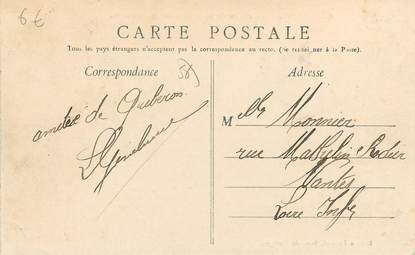 6€
CARTE POSTALE
Tous les pays étrangers n'acceptent pas la correspondance au recto. (Se renseigner à la Poste).
Correspondance
58
Adresse
amitié de Quiberon
Melle Monnier
rue Mathelin Rodier
Nantes
Loire Infre